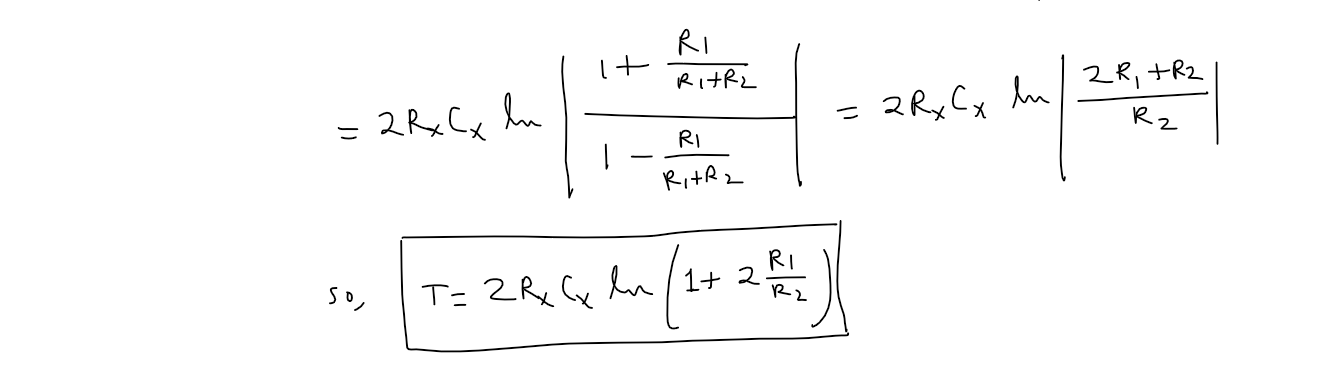 = 2RₓCₓ ln |(1 + R1/(R1+R2)) / (1 − R1/(R1+R2))| = 2RₓCₓ ln |(2R1+R2)/R2|
so, T = 2RₓCₓ ln(1 + 2 R1/R2)